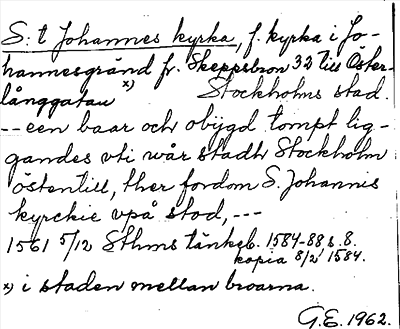 S:t Johannes kyrka, f. kyrka i Jo-
hannesgränd fr. Skeppsbron 32 till Öster-
långgatan x) Stockholms stad.
-- een baar och obygd tompt lig-
gandes vti wår stadh Stockholm
östentill, ther fordom S. Johannis
kyrckie vpå stod, ---
1561 5/12 Sthms tänkeb. 1584-88 s. 8.
kopia 8/2 1584.
x) i staden mellan broarna.
G.E. 1962.